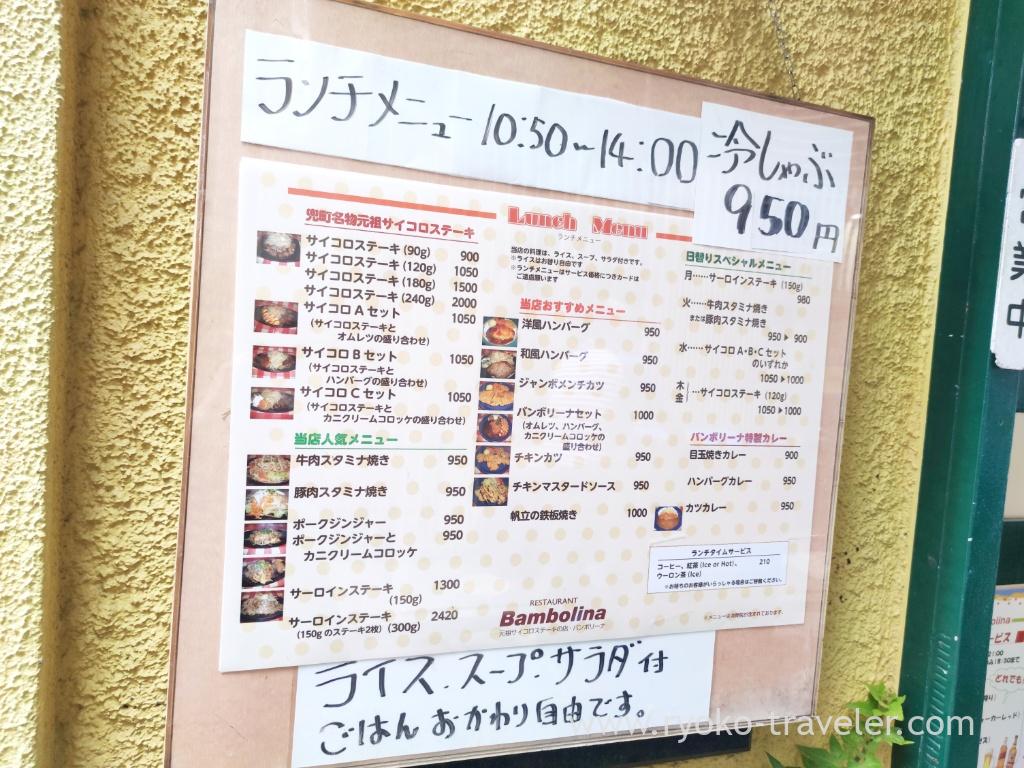 ランチメニュー 10:50~14:00
冷しゃぶ
950円
兜町名物元祖サイコロステーキ
サイコロステーキ (90g) 900
サイコロステーキ (120g) 1050
サイコロステーキ (180g) 1500
サイコロステーキ (240g) 2000
サイコロAセット 1050
(サイコロステーキと
オムレツの盛り合わせ)
サイコロBセット 1050
(サイコロステーキと
ハンバーグの盛り合わせ)
サイコロCセット 1050
(サイコロステーキと
カニクリームコロッケの盛り合わせ)
当店人気メニュー
牛肉スタミナ焼き 950
豚肉スタミナ焼き 950
ポークジンジャー 950
ポークジンジャーと 950
カニクリームコロッケ
サーロインステーキ 1300
(150g)
サーロインステーキ 2420
(150gのステーキ2枚) (300g)
Lunch Menu
ランチメニュー
当店の料理は、ライス、スープ、サラダ付きです。
※ライスはお替り自由です
※ランチメニューはサービス価格につきカードは
ご遠慮願います
当店おすすめメニュー
洋風ハンバーグ 950
和風ハンバーグ 950
ジャンボメンチカツ 950
バンボリーナセット 1000
(オムレツ、ハンバーグ、
カニクリームコロッケの
盛り合わせ)
チキンカツ 950
チキンマスタードソース 950
帆立の鉄板焼き 1000
RESTAURANT
Bambolina
元祖サイコロステーキの店・バンボリーナ
日替りスペシャルメニュー
月……サーロインステーキ (150g)
980
火……牛肉スタミナ焼き
または豚肉スタミナ焼き
950▶900
水……サイコロA・B・Cセット
のいずれか
1050▶1000
木
金
…サイコロステーキ (120g)
1050▶1000
バンボリーナ特製カレー
目玉焼きカレー 900
ハンバーグカレー 950
カツカレー 950
ランチタイムサービス
コーヒー、紅茶 (Ice or Hot)、 210
ウーロン茶 (Ice)
※お待ちのお客様がいらっしゃる場合はご容赦ください。
ライス.スープ.サラダ付
ごはんおかわり自由です。
業
中
www.ryoko-traveler.com